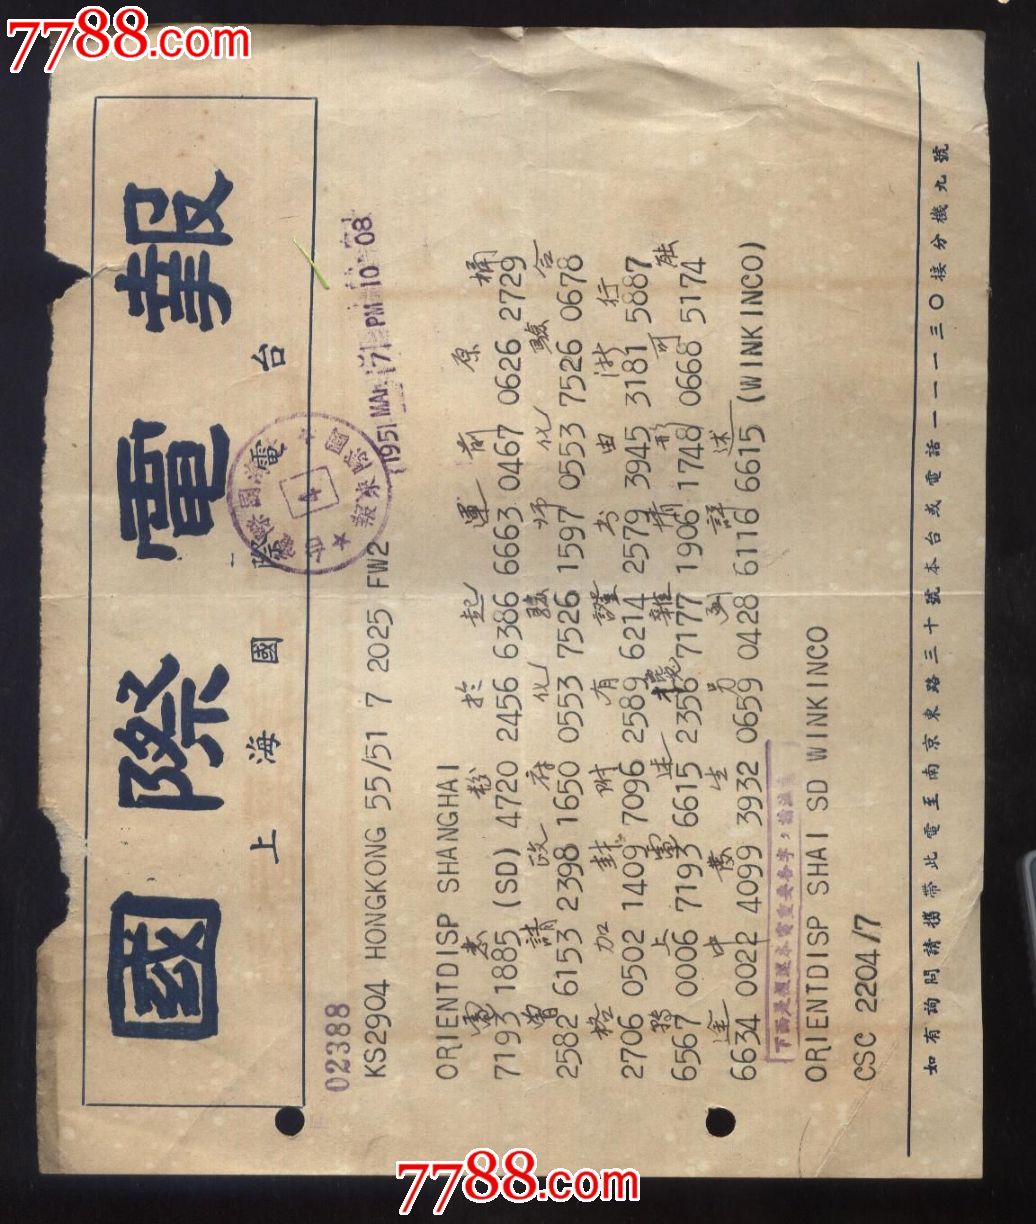 7788.com
國際電報
上海國際電台
02388
KS2904 HONGKONG 55/51 7 2025 FW2
1951 MAR 7 PM 10 08
ORIENTDISP SHANGHAI
電悉 粉於起運前原桶
7193 1885 (SD) 4720 2456 6386 6663 0467 0626 2729
曾請政府化驗師化驗合
2582 6153 2398 1650 0553 7526 1597 0553 7526 0678
格加封附有證書由浙行
2706 0502 1409 7096 2589 6214 2579 3945 3181 5887
上電述擾雜情形可融
6567 0006 7193 6615 2356 7177 1906 1748 0668 5174
途中發生另函詳述
6634 0022 4099 3932 0659 0428 6116 6615 (WINKINCO)
下面是複述本電重要各字，請注意
ORIENTDISP SHAI SD WINKINCO
CSC 2204/7
如有詢問請攜帶此電至南京東路三十號本台或電話一一一三〇接分機九號
7788.com
7788.com